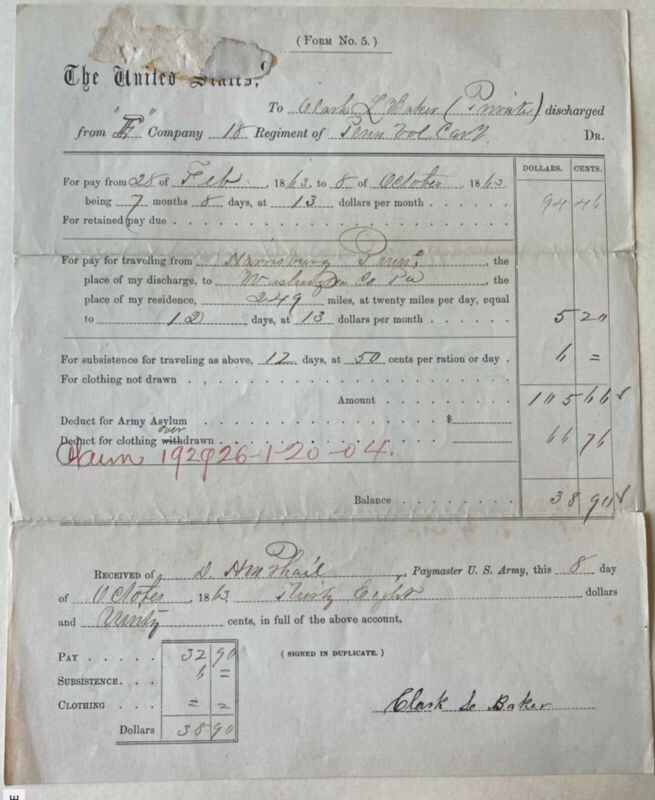 (FORM No. 5.)
The United States,
To Clark L Baker (Private) discharged
from "E" Company 18 Regiment of Penn Vol Cav DR.
DOLLARS. CENTS.
For pay from 28 of Feb, 1863, to 8 of October 1863
being 7 months 8 days, at 13 dollars per month 94 46
For retained pay due
For pay for traveling from Harrisburg Penn, the
place of my discharge, to Washington Co Pa, the
place of my residence, 249 miles, at twenty miles per day, equal
to 12 days, at 13 dollars per month 5 20
For subsistence for traveling as above, 12 days, at 50 cents per ration or day . 6 =
For clothing not drawn
Amount 105 66
Deduct for Army Asylum $
over
Deduct for clothing withdrawn 66 76
Claim 192926-1-20-04.
Balance 38 90
RECEIVED of D. H McPhail, Paymaster U. S. Army, this 8 day
of October, 1863 Thirty Eight dollars
and Ninty cents, in full of the above account.
PAY 32 90 (SIGNED IN DUPLICATE.)
SUBSISTENCE 6 =
CLOTHING = =
Clark L Baker
Dollars 38 90
E